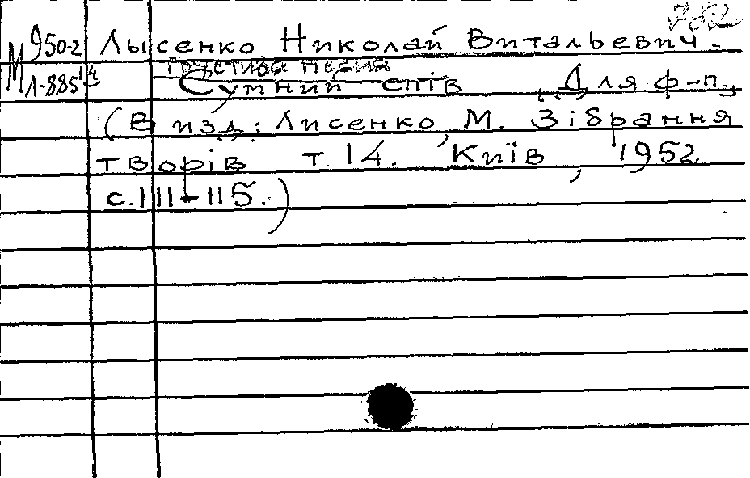 782
М 950-2 Лысенко Николай Витальевич.
Л-885 14 Грустная песня
Сумний спів Для ф-п.
(В изд: Лисенко, М. Зібрання
творів т. 14. Київ, 1952
с. 111-115.)